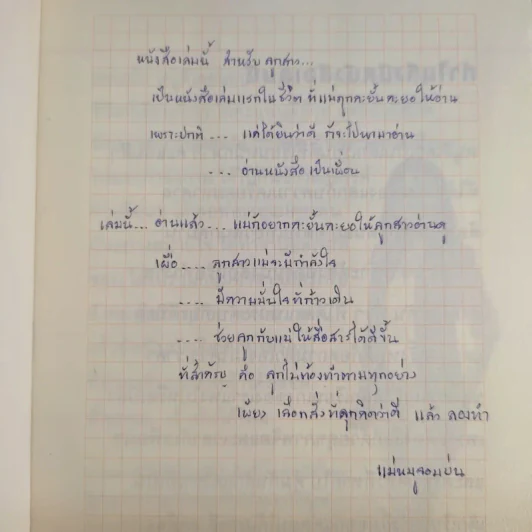 หนังสือเล่มนี้ สำหรับ ลูกสาว...
เป็นหนังสือเล่มแรกในชีวิต ที่แม่ถูกคะยั้นคะยอให้อ่าน
เพราะปกติ .... แค่ได้ยินว่าดี ก็จะไปหามาอ่าน
.... อ่านหนังสือเป็นเพื่อน
เล่มนี้... อ่านแล้ว.... แม่ก็อยากคะยั้นคะยอให้ลูกสาวอ่านดู
เผื่อ.... ลูกสาวแม่จะมีกำลังใจ
.... มีความมั่นใจที่ก้าวเดิน
.... ช่วยลูกกับแม่ให้สื่อสารได้ดีขึ้น
ที่สำคัญ คือ ลูกไม่ต้องทำตามทุกอย่าง
เพียง เลือกสิ่งที่ลูกคิดว่าดี แล้ว ลองทำ
แม่หมูจอมบ่น